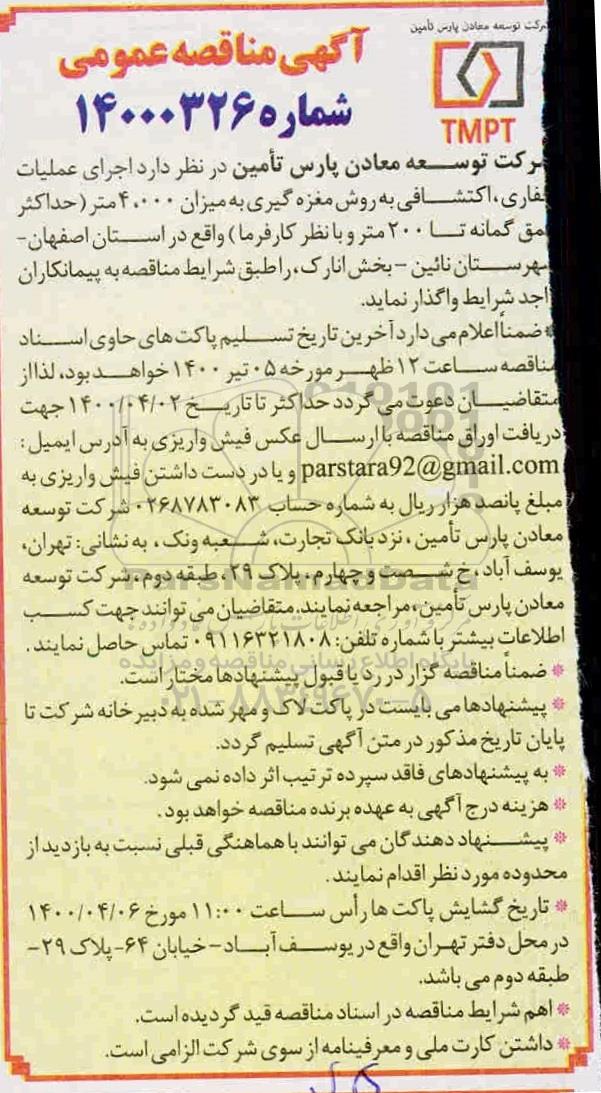 شرکت توسعه معادن پارس تأمین
TMPT
آگهی مناقصه عمومی
شماره ۱۴۰۰۰۳۲۶
شرکت توســـعه معادن پارس تأمین در نظر دارد اجرای عملیات
حفاری، اکتشـــافی به روش مغزه گیری به میزان ۴،۰۰۰ متر (حداکثر
عمق گمانه تـــا ۲۰۰ متر و با نظر کارفرما) واقع در اســـتان اصفهان-
شهرســـتان نائین – بخش انارک، را طبق شرایط مناقصه به پیمانکاران
واجد شرایط واگذار نماید.
* ضمناً اعلام می دارد آخرین تاریخ تســـلیم پاکت های حاوی اســـناد
مناقصه ســـاعت ۱۲ ظهـــر مورخه ۰۵ تیر ۱۴۰۰ خواهـــد بود، لذا از
متقاضیـــان دعوت می گردد حداکثر تا تاریـــخ ۱۴۰۰/۰۴/۰۲ جهت
دریافت اوراق مناقصه با ارســـال عکس فیش واریزی به آدرس ایمیل :
parstara92@gmail.com و یا در دست داشتن فیش واریزی به
مبلغ پانصد هزار ریال به شماره حساب ۰۲۶۸۷۸۳۰۸۳ شرکت توسعه
معادن پارس تأمین ، نزد بانک تجارت، شـــعبه ونک ، به نشانی: تهران،
یوسف آباد ، خ شـــصت و چهارم ، پلاک ۲۹، طبقه دوم ، شرکت توسعه
معادن پارس تأمین، مراجعه نمایند. متقاضیان می توانند جهت کســـب
اطلاعات بیشتر با شماره تلفن: ۰۹۱۱۶۳۲۱۸۰۸ تماس حاصل نمایند .
* ضمناً مناقصه گزار در رد یا قبول پیشنهادها مختار است.
* پیشنهادها می بایست در پاکت لاک و مهر شده به دبیرخانه شرکت تا
پایان تاریخ مذکور در متن آگهی تسلیم گردد.
* به پیشنهادهای فاقد سپرده ترتیب اثر داده نمی شود.
* هزینه درج آگهی به عهده برنده مناقصه خواهد بود .
* پیشـــنهاد دهندگان می توانند با هماهنگی قبلی نسبت به بازدید از
محدوده مورد نظر اقدام نمایند .
* تاریخ گشایش پاکت ها رأس ســـاعت ۱۱:۰۰ مورخ ۱۴۰۰/۰۴/۰۶
در محل دفتر تهـــران واقع در یوســـف آبـــاد – خیابان ۶۴- پلاک ۲۹-
طبقه دوم می باشد.
* اهم شرایط مناقصه در اسناد مناقصه قید گردیده است.
* داشتن کارت ملی و معرفینامه از سوی شرکت الزامی است.
ParsNamadData
پایگاه اطلاع رسانی مناقصه و مزایده
۰۲۱-۸۸۳۴۹۶۷۰-۵